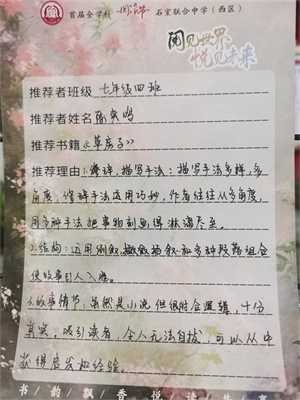 首届全学科阅读节 石室联合中学(西区)
阅见世界
悦见未来
推荐者班级 七年级四班
推荐者姓名
推荐书籍《草房子》
推荐理由:1.修辞,描写手法:描写手法多样,多
角度,修辞手法运用巧妙,作者往往从多角度,
用多种手法把事物刻画得淋漓尽至。
2.结构:运用倒叙,插叙和多种段落组合
使故事引人入胜。
3.故事情节,虽然是小说但很附合逻辑,十分
真实,吸引读者,令人无法自拔,可以从中
获得启发和经验。
书 韵 飘 香 悦 读